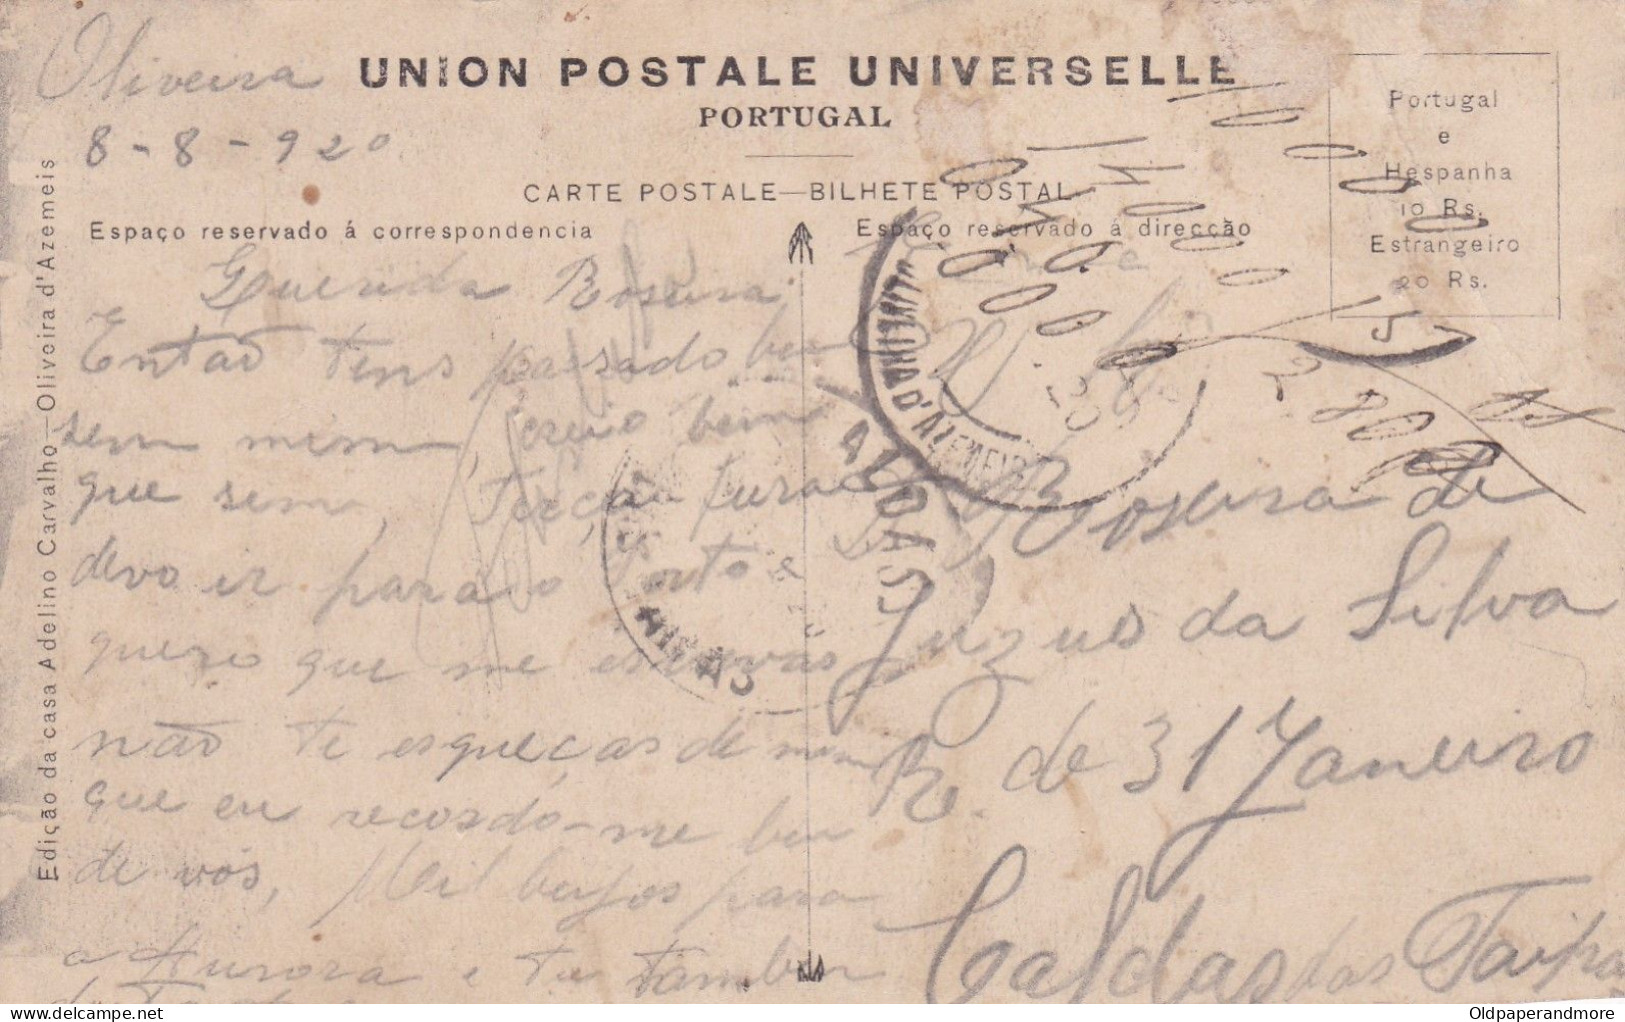 Oliveira
8-8-920
UNION POSTALE UNIVERSELLE
PORTUGAL
CARTE POSTALE—BILHETE POSTAL
Espaço reservado á correspondencia
Espaço reservado á direcção
Portugal
e
Hespanha
10 Rs.
Estrangeiro
20 Rs.
Edição da casa Adelino Carvalho—Oliveira d'Azemeis
Querida Roseira
Então tens passado bem
sem mim, creio bem
que sem, Terça feira
devo ir para o Porto e
quero que me escrevas
não te esqueças de mim
que eu recordo-me bem
de vós, Mil beijos para
a Aurora e tu tambem
Roseira de
Juzus da Silva
R. de 31 Janeiro
Caldas das Taipas
D'AZEMEIS